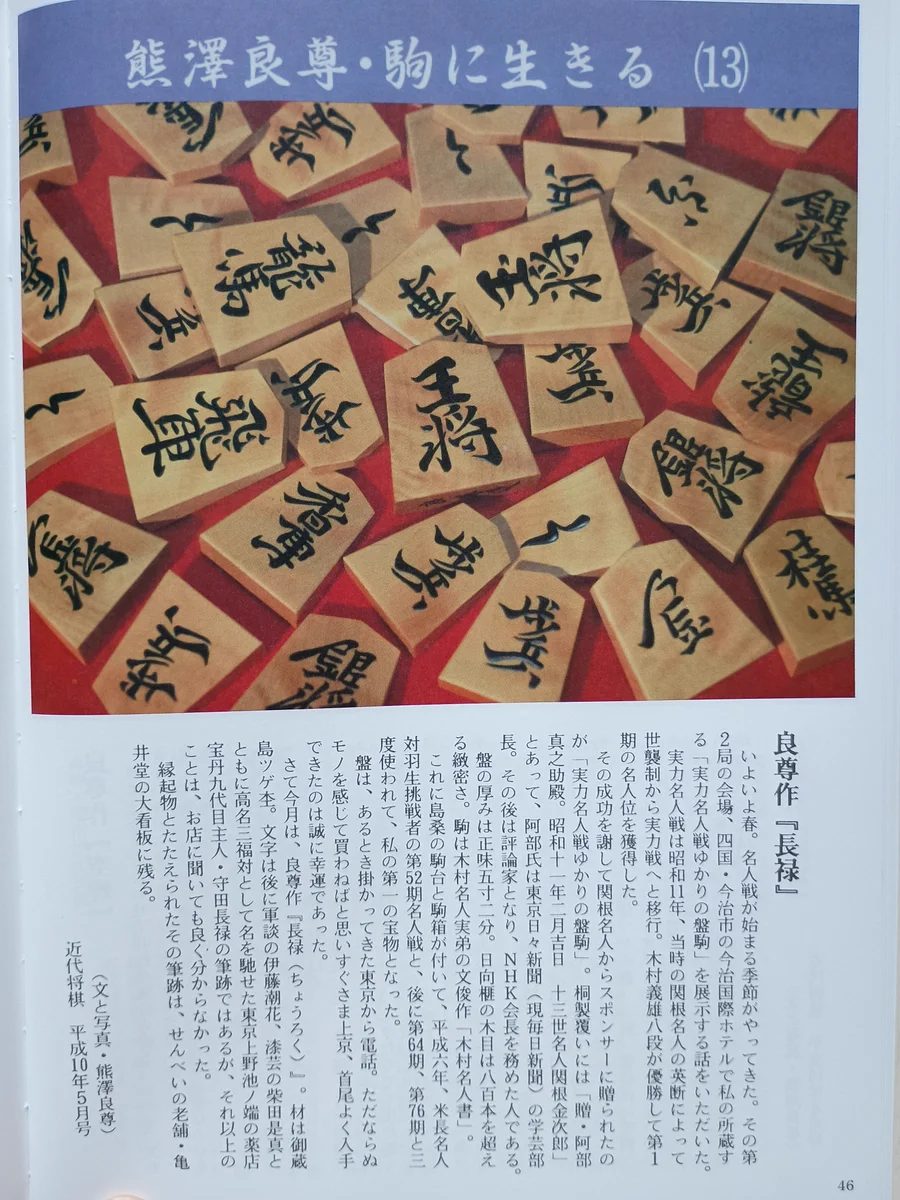 熊澤良尊・駒に生きる (13)
良尊作『長禄』
いよいよ春。名人戦が始まる季節がやってきた。その第
2局の会場、四国・今治市の今治国際ホテルで私の所蔵す
る「実力名人戦ゆかりの盤駒」を展示する話をいただいた。
実力名人戦は昭和11年、当時の関根名人の英断によって
世襲制から実力戦へと移行。木村義雄八段が優勝して第1
期の名人位を獲得した。
その成功を謝して関根名人からスポンサーに贈られたの
が「実力名人戦ゆかりの盤駒」。桐製覆いには「贈・阿部
真之助殿。昭和十一年二月吉日 十三世名人関根金次郎」
とあって、阿部氏は東京日々新聞（現毎日新聞）の学芸部
長。その後は評論家となり、NHK会長を務めた人である。
盤の厚みは正味五寸二分。日向榧の木目は八百本を超え
る緻密さ。駒は木村名人実弟の文俊作「木村名人書」。
これに島桑の駒台と駒箱が付いて、平成六年、米長名人
対羽生挑戦者の第52期名人戦と、後に第64期、第76期と三
度使われて、私の第一の宝物となった。
盤は、あるとき掛かってきた東京から電話。ただならぬ
モノを感じて買わねばと思いすぐさま上京、首尾よく入手
できたのは誠に幸運であった。
さて今月は、良尊作『長禄（ちょうろく）』。材は御蔵
島ツゲ杢。文字は後に軍談の伊藤潮花、漆芸の柴田是真と
ともに高名三福対として名を馳せた東京上野池ノ端の薬店
宝丹九代目主人・守田長禄の筆跡ではあるが、それ以上の
ことは、お店に聞いても良く分からなかった。
縁起物とたたえられたその筆跡は、せんべいの老舗・亀
井堂の大看板に残る。
（文と写真・熊澤良尊）
近代将棋 平成10年5月号
46
龍馬
王将
銀将
飛車
王将
歩兵
銀将
歩兵
歩兵
桂馬
と